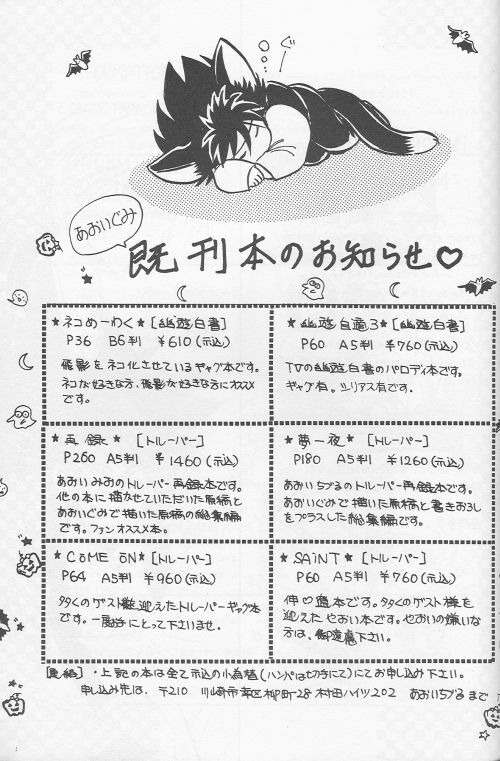 ぐー
あおいぐみ
既刊本のお知らせ♡
★ネコめーわく★[幽遊白書]
P36 B6判 ¥610(税込)
飛影をネコ化させているギャグ本です。
ネコ好きな方、飛影好きな方にオススメ
です。
★幽遊自適3★[幽遊白書]
P60 A5判 ¥760(税込)
TVの幽遊白書のパロディ本です。
ギャグ有。シリアス有です。
★再録★[トルーパー]
P260 A5判 ¥1460(税込)
あおいみおのトルーパー再録本です。
他の本に描かせていただいた原稿と
あおいぐみで描いた原稿の総集編
です。ファンオススメ本。
★夢一夜★[トルーパー]
P180 A5判 ¥1260(税込)
あおいちづるのトルーパー再録本です。
あおいぐみで描いた原稿と書きおろし
をプラスした総集編です。
★COME ON★[トルーパー]
P64 A5判 ¥960(税込)
多々くのゲスト様迎えたトルーパーギャグ本
です。一度手にとって下さいませ。
★SAiNT★[トルーパー]
P60 A5判 ¥760(税込)
伸♡当本です。多々くのゲスト様を
迎えたやおい本です。やおいの嫌いな
方は、御遠慮下さい。
・上記の本は全て税込の小為替(ハンパは切手にて)にてお申し込み下さい。
申し込み先は、〒210 川崎市幸区柳町28 村田ハイツ202 あおいちづるまで